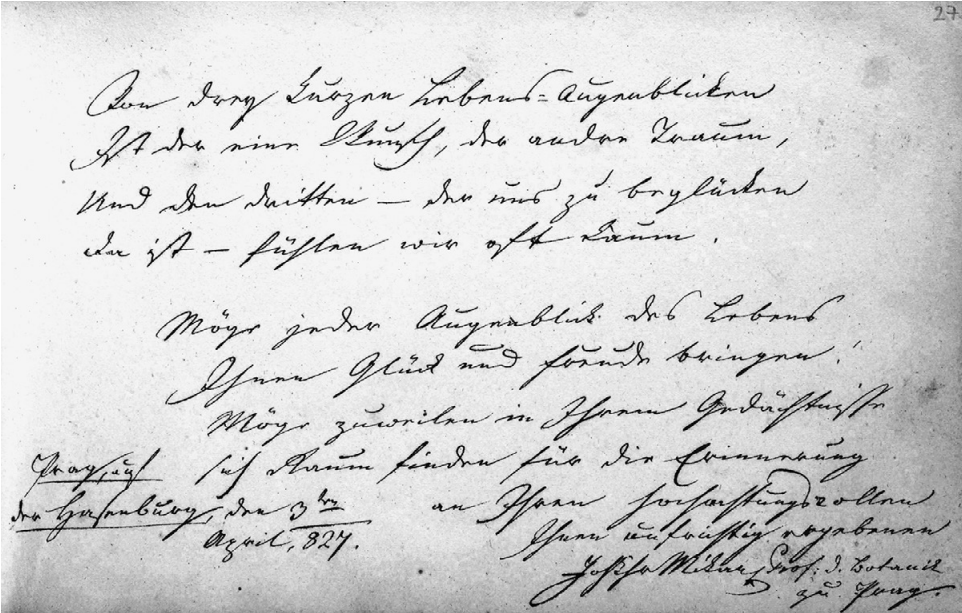 27
Von drey kurzen Lebens=Augenblicken
Ist der eine Wunsch, der andre Traum,
Und den dritten — der uns zu beglücken
da ist — fühlen wir oft kaum.
Möge jeder Augenblick des Lebens
Ihnen Glück und Freude bringen!
Möge zuweilen in Ihrem Gedächtnisse
sich Raum finden für die Erinnerung
an Ihren hochachtungsvollen
Ihnen aufrichtig ergebenen
Mikan Prof: d. Botanik
zu Prag.
Prag, auf
der Hasenburg, den 3ten
April, 827.